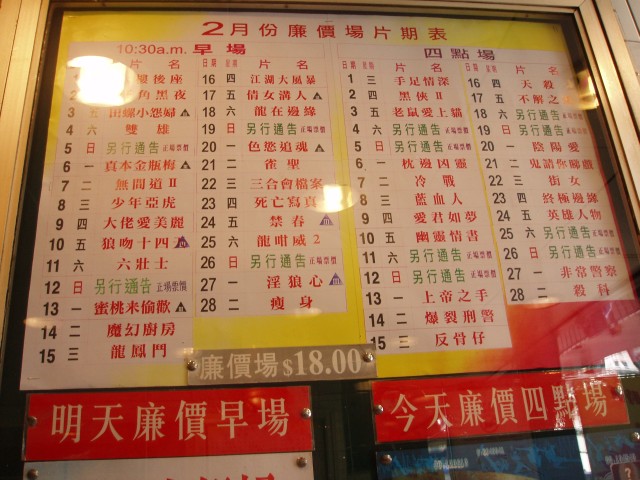 2月份廉價場片期表
10:30a.m. 早場
片名
日期 星期 片名
樓後座
角黑夜
3 五 田螺小怨婦
4 六 雙雄
5 日 另行通告 正場票價
6 一 真本金瓶梅
7 二 無間道II
8 三 少年亞虎
9 四 大佬愛美麗
10 五 狼吻十四
11 六 六壯士
12 日 另行通告 正場票價
13 一 蜜桃来偷歡
14 二 魔幻廚房
15 三 龍鳳鬥
16 四 江湖大風暴
17 五 倩女溝人
18 六 龍在邊緣
19 日 另行通告 正場票價
20 一 色慾追魂
21 二 雀聖
22 三 三合會檔案
23 四 死亡寫真
24 五 禁春
25 六 龍咁威2
26 日 另行通告 正場票價
27 一 淫狼心
28 二 瘦身
四點場
日期 星期 片名
日期 星期 片名
1 三 手足情深
2 四 黑俠II
3 五 老鼠愛上貓
4 六
5 日 另行通告 正場票價
6 一 枕邊凶靈
7 二 冷戰
8 三 藍血人
9 四 愛君如夢
10 五 幽靈情書
11 六
12 日 另行通告 正場票價
13 一 上帝之手
14 二 爆裂刑警
15 三 反骨仔
16 四 天殺
17 五 不解之
18 六
19 日 另行通告 正場票價
20 一 陰陽愛
21 二 鬼請你睇戲
22 三 街女
23 四 終極邊緣
24 五 英雄人物
25 六
26 日 另行通告 正場票價
27 一 非常警察
28 二 殺科
廉價場$18.00
明天廉價早場
今天廉價四點場